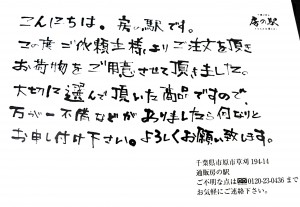 こんにちは。房の駅です。
この度ご依頼主様よりご注文を頂き
お荷物をご用意させて頂きました。
大切に選んで頂いた商品ですので、
万が一不備などがありましたら何なりと
お申し付け下さい。よろしくお願い致します。
房の駅
千葉県市原市草刈194-14
通販房の駅
ご不明な点は 0120-23-0436 まで
お気軽にご連絡下さい。